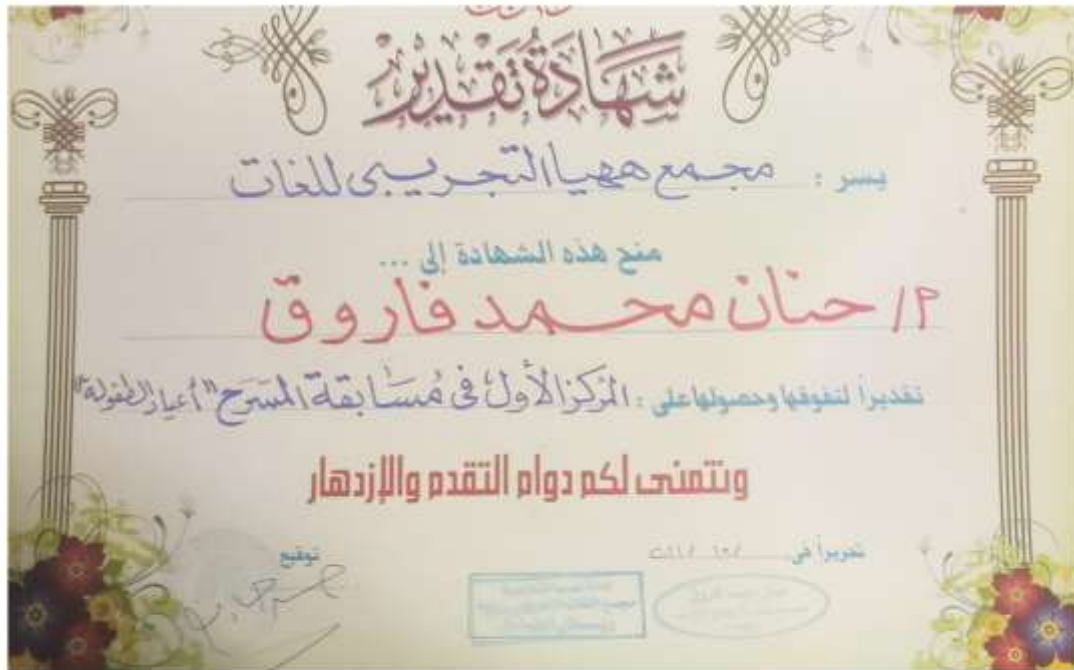 شهادة تقدير
يسر : مجمع ههيا التجريبى للغات
منح هذه الشهادة إلى ...
م/ حنان محمد فاروق
تقديراً لتفوقها وحصولها على : المركز الأول فى مسابقة المسرح "أعياد الطفولة"
ونتمنى لكم دوام التقدم والإزدهار
تحريراً فى
توقيع